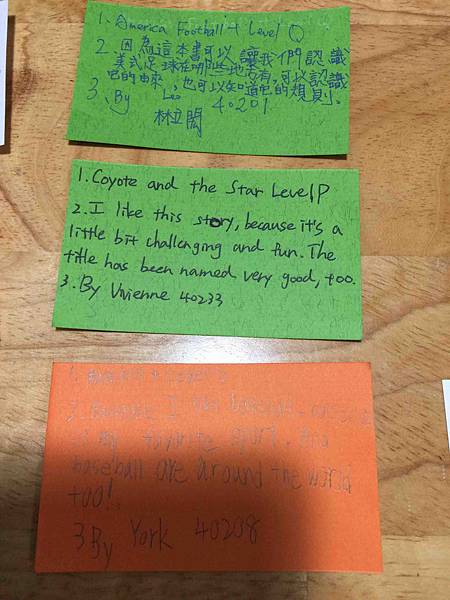 1. America Football → Level Q
2. 因為這本書可以讓我們認識
美式足球在哪些地方有,可以認識
它的由來,也可以知道它的規則。
3. By Leo 40201
林立閎
1. Coyote and the Star Level P
2. I like this story, because it's a
little bit challenging and fun. The
title has been named very good, too.
3. By Vivienne 40233
1. Level
2. Because I like baseball.
my favorite sport. And
baseball are around the world
too!
3 By York 40208